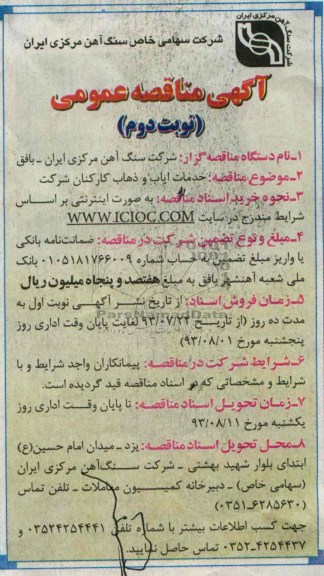 شرکت سنگ آهن مرکزی ایران
شرکت سهامی خاص سنگ آهن مرکزی ایران
آگهی مناقصه عمومی
(نوبت دوم)
۱ـ نام دستگاه مناقصه گزار: شرکت سنگ آهن مرکزی ایران ـ بافق
۲ـ موضوع مناقصه: خدمات ایاب و ذهاب کارکنان شرکت
۳ـ نحوه خرید اسناد مناقصه: به صورت اینترنتی بر اساس
شرایط مندرج در سایت WWW.ICIOC.COM
۴ـ مبلغ و نوع تضمین شرکت در مناقصه: ضمانت‌نامه بانکی
یا واریز مبلغ تضمین به حساب شماره ۰۱۰۵۱۸۱۷۶۶۰۰۹ بانک
ملی شعبه آهنشهر بافق به مبلغ هفتصد و پنجاه میلیون ریال
۵ـ زمان فروش اسناد: از تاریخ نشر آگهی نوبت اول به
مدت ده روز (از تاریخ ۹۳/۰۷/۲۲ لغایت پایان وقت اداری روز
پنجشنبه مورخ ۹۳/۰۸/۰۱)
۶ـ شرایط شرکت در مناقصه: پیمانکاران واجد شرایط و با
شرایط و مشخصاتی که در اسناد مناقصه قید گردیده است.
۷ـ زمان تحویل اسناد مناقصه: تا پایان وقت اداری روز
یکشنبه مورخ ۹۳/۰۸/۱۱
۸ـ محل تحویل اسناد مناقصه: یزد ـ میدان امام حسین(ع)
ابتدای بلوار شهید بهشتی ـ شرکت سنگ‌آهن مرکزی ایران
(سهامی خاص) ـ دبیرخانه کمیسیون معاملات ـ تلفن تماس
(۰۳۵۱-۶۲۸۵۶۳۰)
جهت کسب اطلاعات بیشتر با شماره تلفن ۰۳۵۲۴۲۵۴۴۴۱ و
۰۳۵۲-۴۲۵۴۴۳۷ تماس حاصل نمایید.